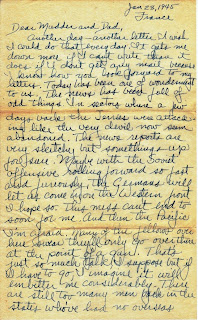 Jan 28, 1945
France
Dear Mudder and Dad,
Another day - another letter. I wish
I could do that everyday. It gets me
down more if I can't write than it
does if I don't get any mail because
I know how you look forward to my
letters. Today has been one of wonderment
to us. The news has been full of
odd things. In sectors where a few
days back the Jerries were attack-
ing like the very devil now seem
abandoned. The news reports are
very sketchy but something's up
for sure. Maybe with the Soviet
offensive rolling forward so fast
and furiously the Germans will
let us come in on the Western front
I hope so. This mess can't end too
soon for me. And then the Pacific
I'm afraid. Many of the fellows over
here swear they'll only go over there
at the point of a gun. That's
just so much talk I suppose but if
I have to go I imagine it will
embitter me considerably. There
are still too many men in the
states who've had no overseas